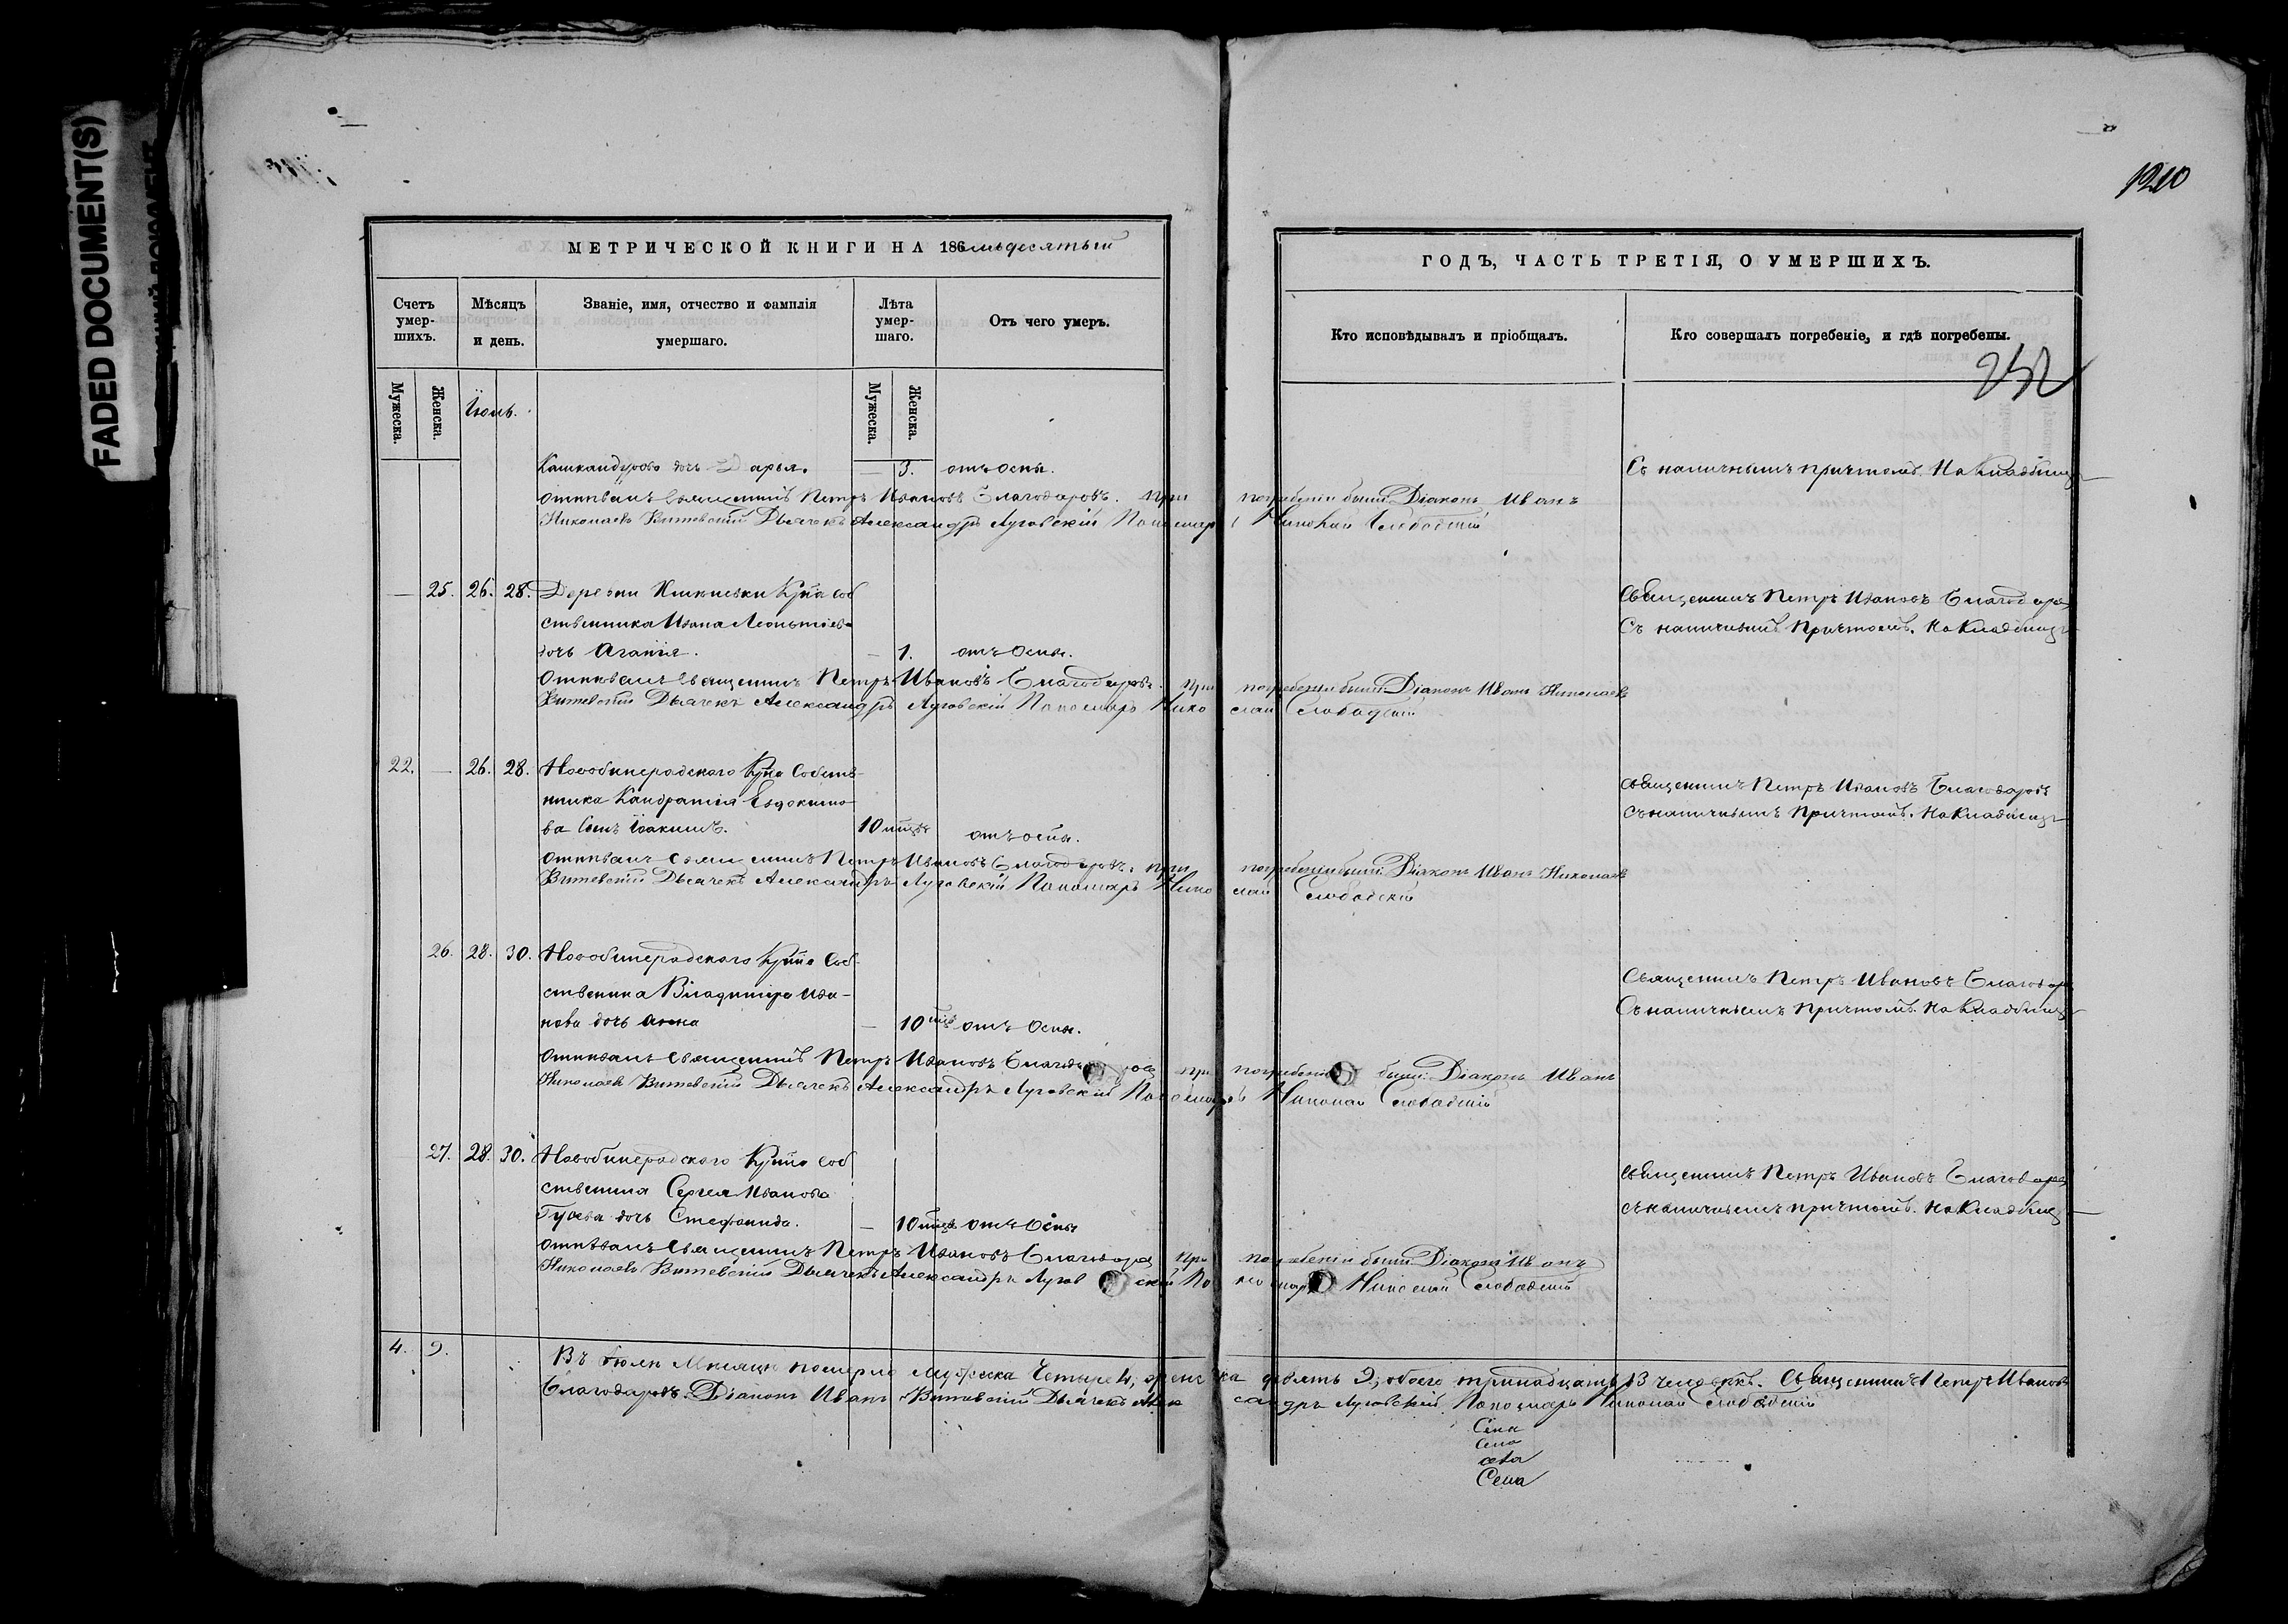 FADED DOCUMENT(S)
1210
МЕТРИЧЕСКОЙ КНИГИ НА 186 мьдесятый
ГОДЪ, ЧАСТЬ ТРЕТІЯ, О УМЕРШИХЪ.
Счетъ умер-шихъ.
Мѣсяцъ и день.
Званіе, имя, отчество и фамилія умершаго.
Лѣта умер-шаго.
Отъ чего умеръ.
Кто исповѣдывалъ и пріобщалъ.
Кто совершалъ погребеніе, и гдѣ погребены.
252
Мужеска.
Женска.
Іюль.
Мужеска.
Женска.
дочь Дарья. — 3. отъ оспы.
Съ наличнымъ причтомъ. На Кладбищѣ
Отпѣвалъ Священникъ Петръ Ивановъ Благодаровъ. при погребеніи были: Діаконъ Иванъ
Николаевъ Витевскій Дьячекъ Александръ Луговскій Пономарь Николай Слободскій
— 25. 26. 28. Деревни Кр͠на соб
ственника Ивана Леонтіева
дочь Агапія. — 1. отъ Оспы.
Священникъ Петръ Ивановъ Благодаро
Съ наличнымъ Причтомъ. На Кладбищѣ
Отпѣвалъ Священникъ Петръ Ивановъ Благодаровъ. при погребеніи были: Діаконъ Иванъ Николаевъ
Витевскій Дьячекъ Александръ Луговскій Пономарь Николай Слободскій
22. — 26. 28. Кр͠на Собств-
нника Кандратія Евдокимо-
ва Сынъ Іоакимъ. 10 мцвъ отъ оспы.
Священникъ Петръ Ивановъ Благодаровъ
Съ наличнымъ Причтомъ. На Кладбищѣ
Отпѣвалъ Священникъ Петръ Ивановъ Благодаровъ. при погребеніи были: Діаконъ Иванъ Николаевъ
Витевскій Дьячекъ Александръ Луговскій Пономарь Николай Слободскій
26. 28. 30. Кр͠на Соб-
ственника Владиміра Ива-
нова дочь Анна — 10 мцв отъ Оспы.
Священникъ Петръ Ивановъ Благодар
Съ наличнымъ Причтомъ. На Кладбищѣ
Отпѣвалъ Священникъ Петръ Ивановъ при погребеніи были: Діаконъ Иванъ
Николаевъ Витевскій Дьячекъ Александръ Луговскій Пономарь Николай Слободскій
27. 28. 30. Кр͠на соб
ственника Сергея Иванова
дочь Стефанида. — 10 мцв отъ Оспы
Священникъ Петръ Ивановъ Благодаро
Съ наличнымъ причтомъ. На Кладбищѣ
Отпѣвалъ Священникъ Петръ Ивановъ Благодаро при погребеніи были: Діаконъ Иванъ
Николаевъ Витевскій Дьячекъ Александръ Луговскій Пономарь Николай Слободскій
4. 9.
Въ Іюлѣ Мѣсяцѣ померло мужеска Четыре 4, женска девять 9, обоего тринадцать 13 человѣкъ. Священникъ Петръ Ивановъ
Благодаровъ. Діаконъ Иванъ Витевскій Дьячекъ Александръ Луговскій Пономарь Николай Слободскій